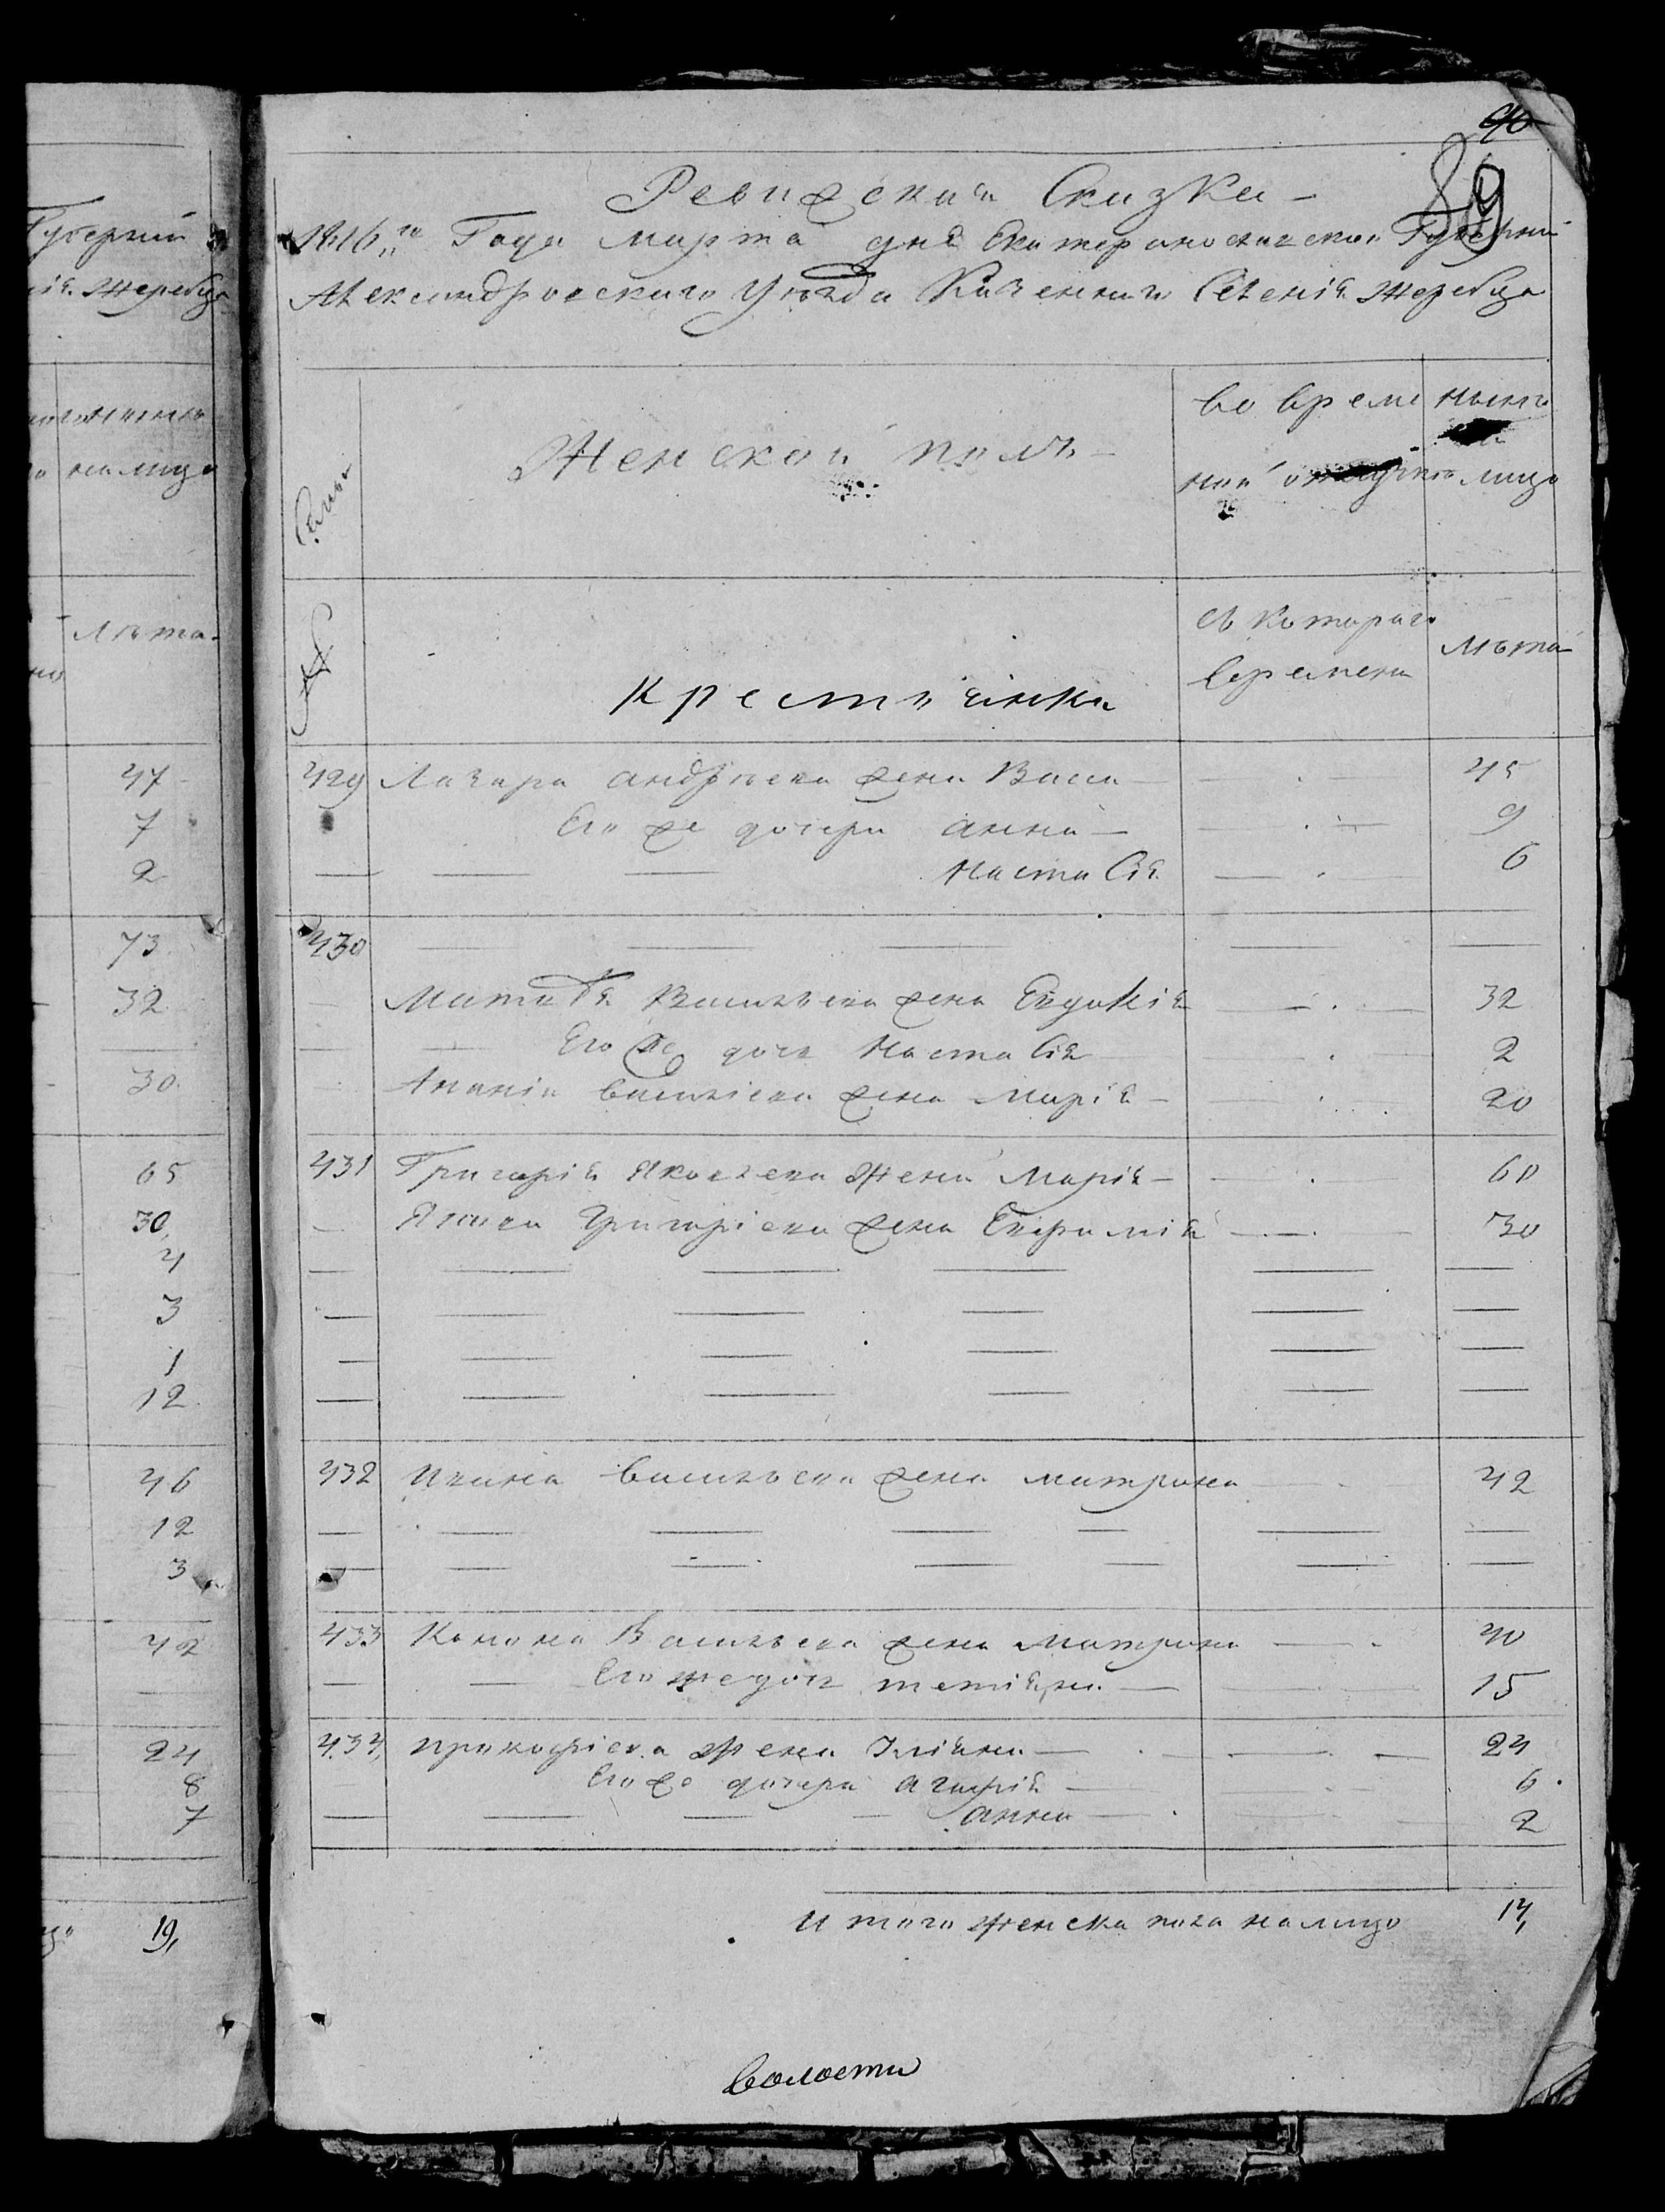 Губерніи
Жеребца
налицо
Лѣта
47
7
2
73
32
30
65
30
4
3
1
12
46
12
3
42
24
8
7
19
90
89
Ревижская Сказка
1816го Года марта дня Екатеринославской Губерніи
Александровскаго Уѣзда Казеннаго Селенія Жеребца
Семьи
Женской полъ
во време нынѣ
ной отлучкѣ лицо
№
Крестьянки
съ котораго
времени
лѣта
429 Лазара андрѣева жена Васса 45
Его же дочери анна 9
настасія 6
430
Матвѣя Васильева жена Евдокія 32
Его же дочь настасія 2
Ананія васильева жена Марія 20
431 Григорія Яковлева жена Марія 60
Григоріева жена Евфимія 30
432 васильева жена матрона 42
433 Конона Васильева жена матрона 40
Его же дочь 15
434 прокофіева жена 24
Его же дочери агафія 6
анна 2
итого женска пола налицо 14
волости